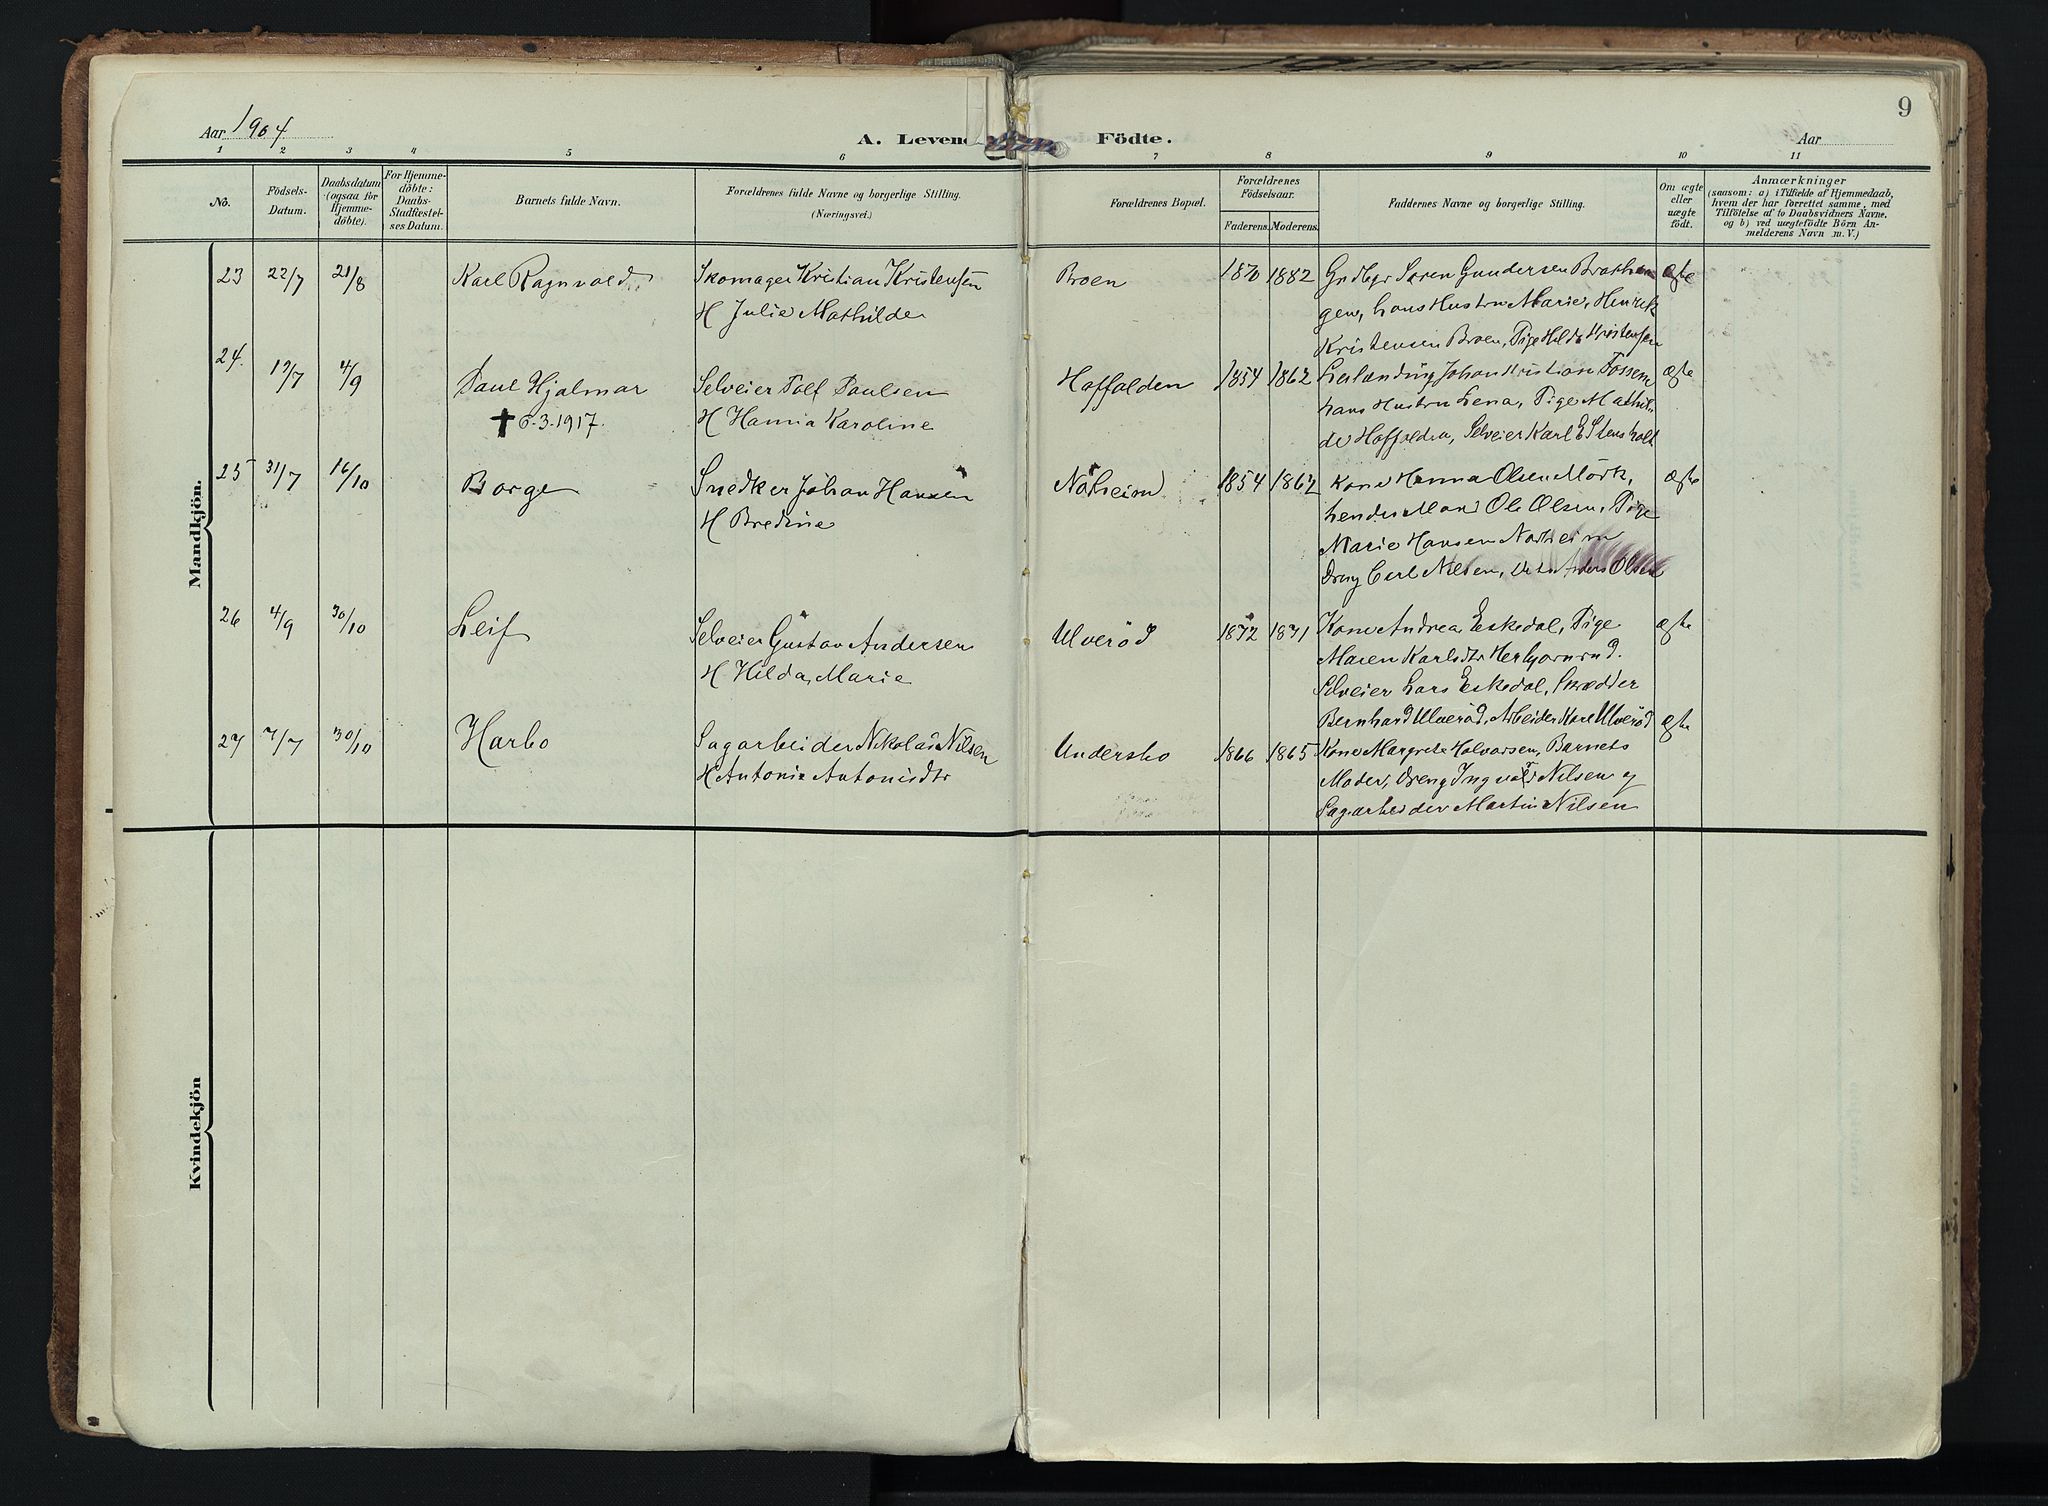 9
Aar 1904
A. Levende Födte.
Aar
1 2 3 4 5 6 7 8 9 10 11
Nô.
Födsels-Datum.
Daabsdatum (ogsaa for Hjemmedöbte).
For Hjemmedöbte: Daabs-Stadfæstelses Datum.
Barnets fulde Navn.
Forældrenes fulde Navne og borgerlige Stilling.
(Næringsvei.)
Forældrenes Bopæl.
Forældrenes Födselsaar.
Faderens. Moderens.
Faddernes Navne og borgerlige Stilling.
Om ægte eller uægte födt.
Anmærkninger
(saasom: a) i Tilfælde af Hjemmedaab,
hvem der har forrettet samme, med
Tilföielse af to Daabsvidners Navne,
og b) ved uægtefödte Börn Anmelderens Navn m. V.)
Mandkjön.
23 22/7 21/8 Karl Ragnvald Skomager Kristian Kristensen Broen 1870 1882 Grdbgr Søren Gundersen Brathaugen, ægte
H Julie Mathilde hans Hustru Marie, Henrik
Kristensen Broen, Pige Hilda Kristensen
24. 19/7 4/9 Paul Hjalmar Selveier Paulsen Haffalden 1854 1862 Johan Kristian Fossem ægte
✝ 6.3.1917. H Hanna Karoline hans Hustru Lena, Pige Mathilde
Haffalden, Selveier Karl E Stensholt
25 31/7 16/10 Borge Snedker Johan Hansen Nörheim 1854 1862 Kone Hanna Olsen Mörk, ægte
H Bredine hendes Mand Ole Olsen, Pige
Marie Hansen Norheim
Dreng Carl Nilsen, Anders Olsen
26 4/9 30/10 Leif Selveier Gustav Andersen Ulveröd 1872 1871 Kone Andrea Eskedal, Pige ægte
H Hilda Marie Maren Karlsdtr Herbjørnrud.
Selveier Lars Eskedal, Skrædder
Bernhard Ulveröd, Arbeider Kare Ulveröd
27 7/7 30/10 Harbo Sagarbeider Nikolai Nilsen Undersbo 1866 1865 Kone Margrete Halvorsen, Barnets ægte
H Antonie Antonisdtr Moder, Dreng Ingvald Nilsen og
Sagarbeider Martin Nilsen
Kvindekjön